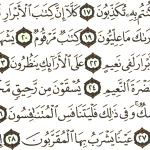 كُنتُم بِهِۦ تُكَذِّبُونَ ١٧ كَلَّآ إِنَّ كِتَٰبَ ٱلْأَبْرَارِ
مَا عِلِّيُّونَ ١٩ كِتَٰبٌ مَّرْقُومٌ ٢٠
لَفِى نَعِيمٍ ٢٢ عَلَى ٱلْأَرَآئِكِ يَنظُرُونَ ٢٣
نَضْرَةَ ٱلنَّعِيمِ ٢٤ يُسْقَوْنَ مِن رَّحِيقٍ
وَفِى ذَٰلِكَ فَلْيَتَنَافَسِ ٱلْمُتَنَٰفِسُونَ
٢٧ عَيْنًا يَشْرَبُ بِهَا ٱلْمُقَرَّبُونَ ٢٨